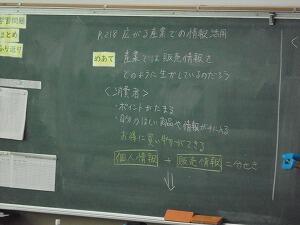 学習問題
まとめ
ふり返り
P.218 広がる産業での情報活用
めあて 産業では販売情報を
どのように生かしているのだろう
<消費者>
・ポイントがたまる
・自分のほしい商品や情報が手に入る
お得に買い物ができる
個人情報 + 販売情報 = 分せき